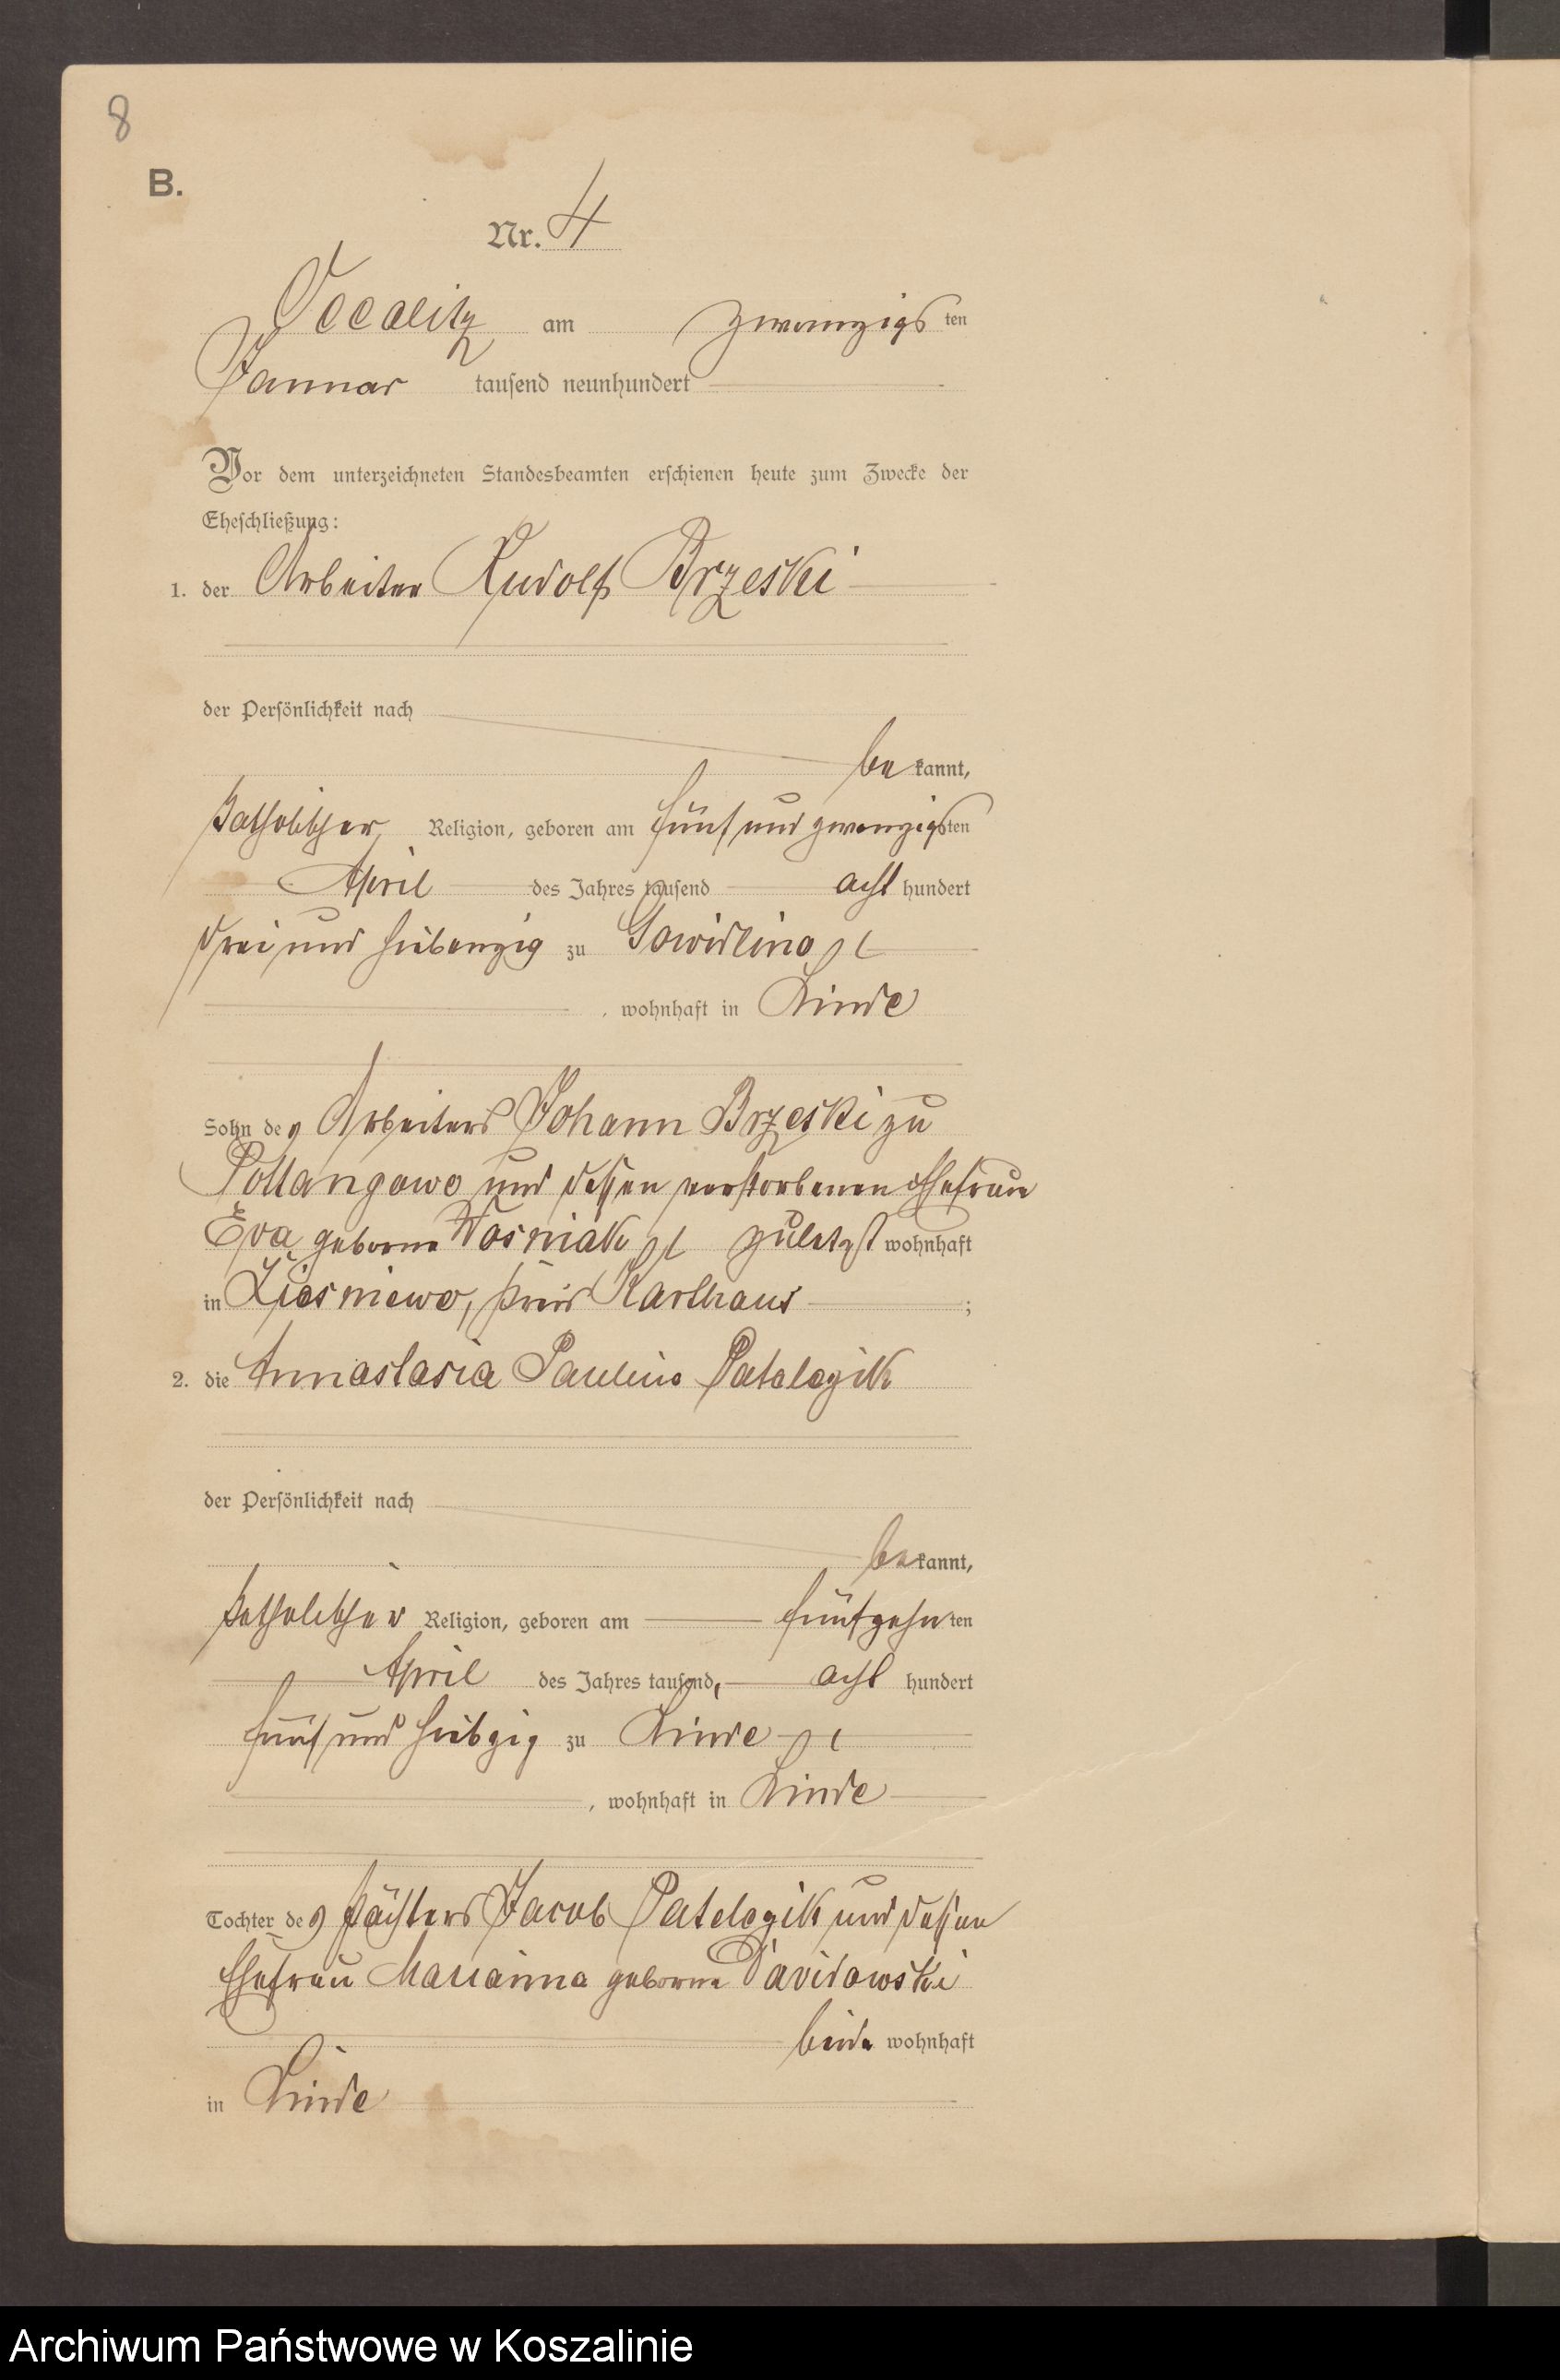 8
B.
Nr. 4
Occalitz am zwanzigsten
Januar tausend neunhundert
Vor dem unterzeichneten Standesbeamten erschienen heute zum Zwecke der
Eheschließung:
1. der Arbeiter Rudolf Brzeski
der Persönlichkeit nach
bekannt,
katholischer Religion, geboren am fünf und zwanzigsten
April des Jahres tausend acht hundert
drei und siebenzig zu Gowidlino
, wohnhaft in Linde
Sohn des Arbeiters Johann Brzeski zu
Pollangowo und dessen verstorbenen Ehefrau
Eva geborne Wosniak zuletzt wohnhaft
in Kreis Karthaus ;
2. die Annastasia Pauline Patelczik
der Persönlichkeit nach
bekannt,
katholischer Religion, geboren am fünfzehnten
April des Jahres tausend acht hundert
fünf und siebzig zu Linde
, wohnhaft in Linde
Tochter des Pächters Jacob Patelczik und dessen
Ehefrau Marianna geborne Davidowski
beide wohnhaft
in Linde
Archiwum Państwowe w Koszalinie